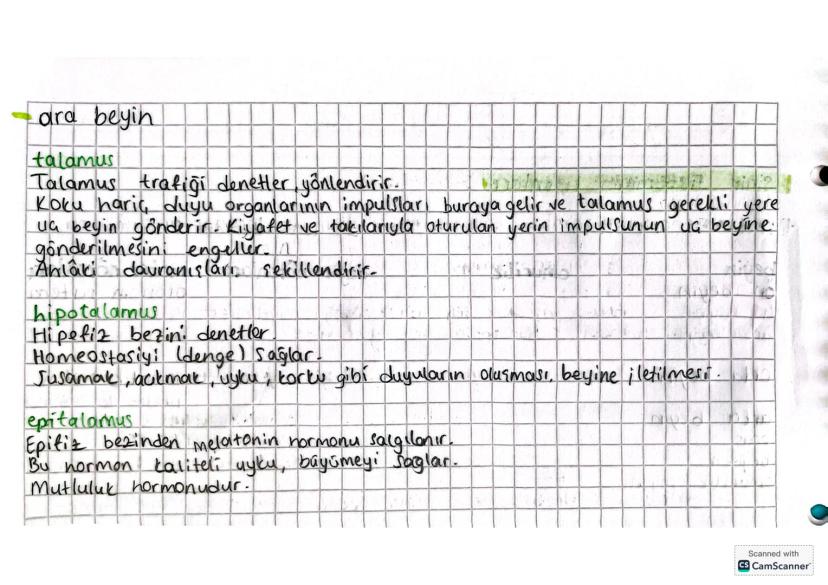 ara beyin
talamus
Talamus trafiği denetler, yönlendirir.
Koku hariç, duyu organlarının impulsları buraya gelir ve talamus gerekli yere
uç beyin gönderir. Kıyafet ve takılarıyla oturulan yerin impulsunun uç beyine
gönderilmesini engeller.
Ahlâki davranışları şekillendirir.
hipotalamus
Hipofiz bezini denetler.
Homeostasiyi (denge) sağlar.
Susamak, acıkmak, uyku, korku gibi duyuların oluşması, beyine iletilmesi.
epitalamus
Epifiz bezinden melatonin hormonu salgılanır.
Bu hormon kaliteli uyku, büyümeyi sağlar.
Mutluluk hormonudur.
Scanned with
CS CamScanner